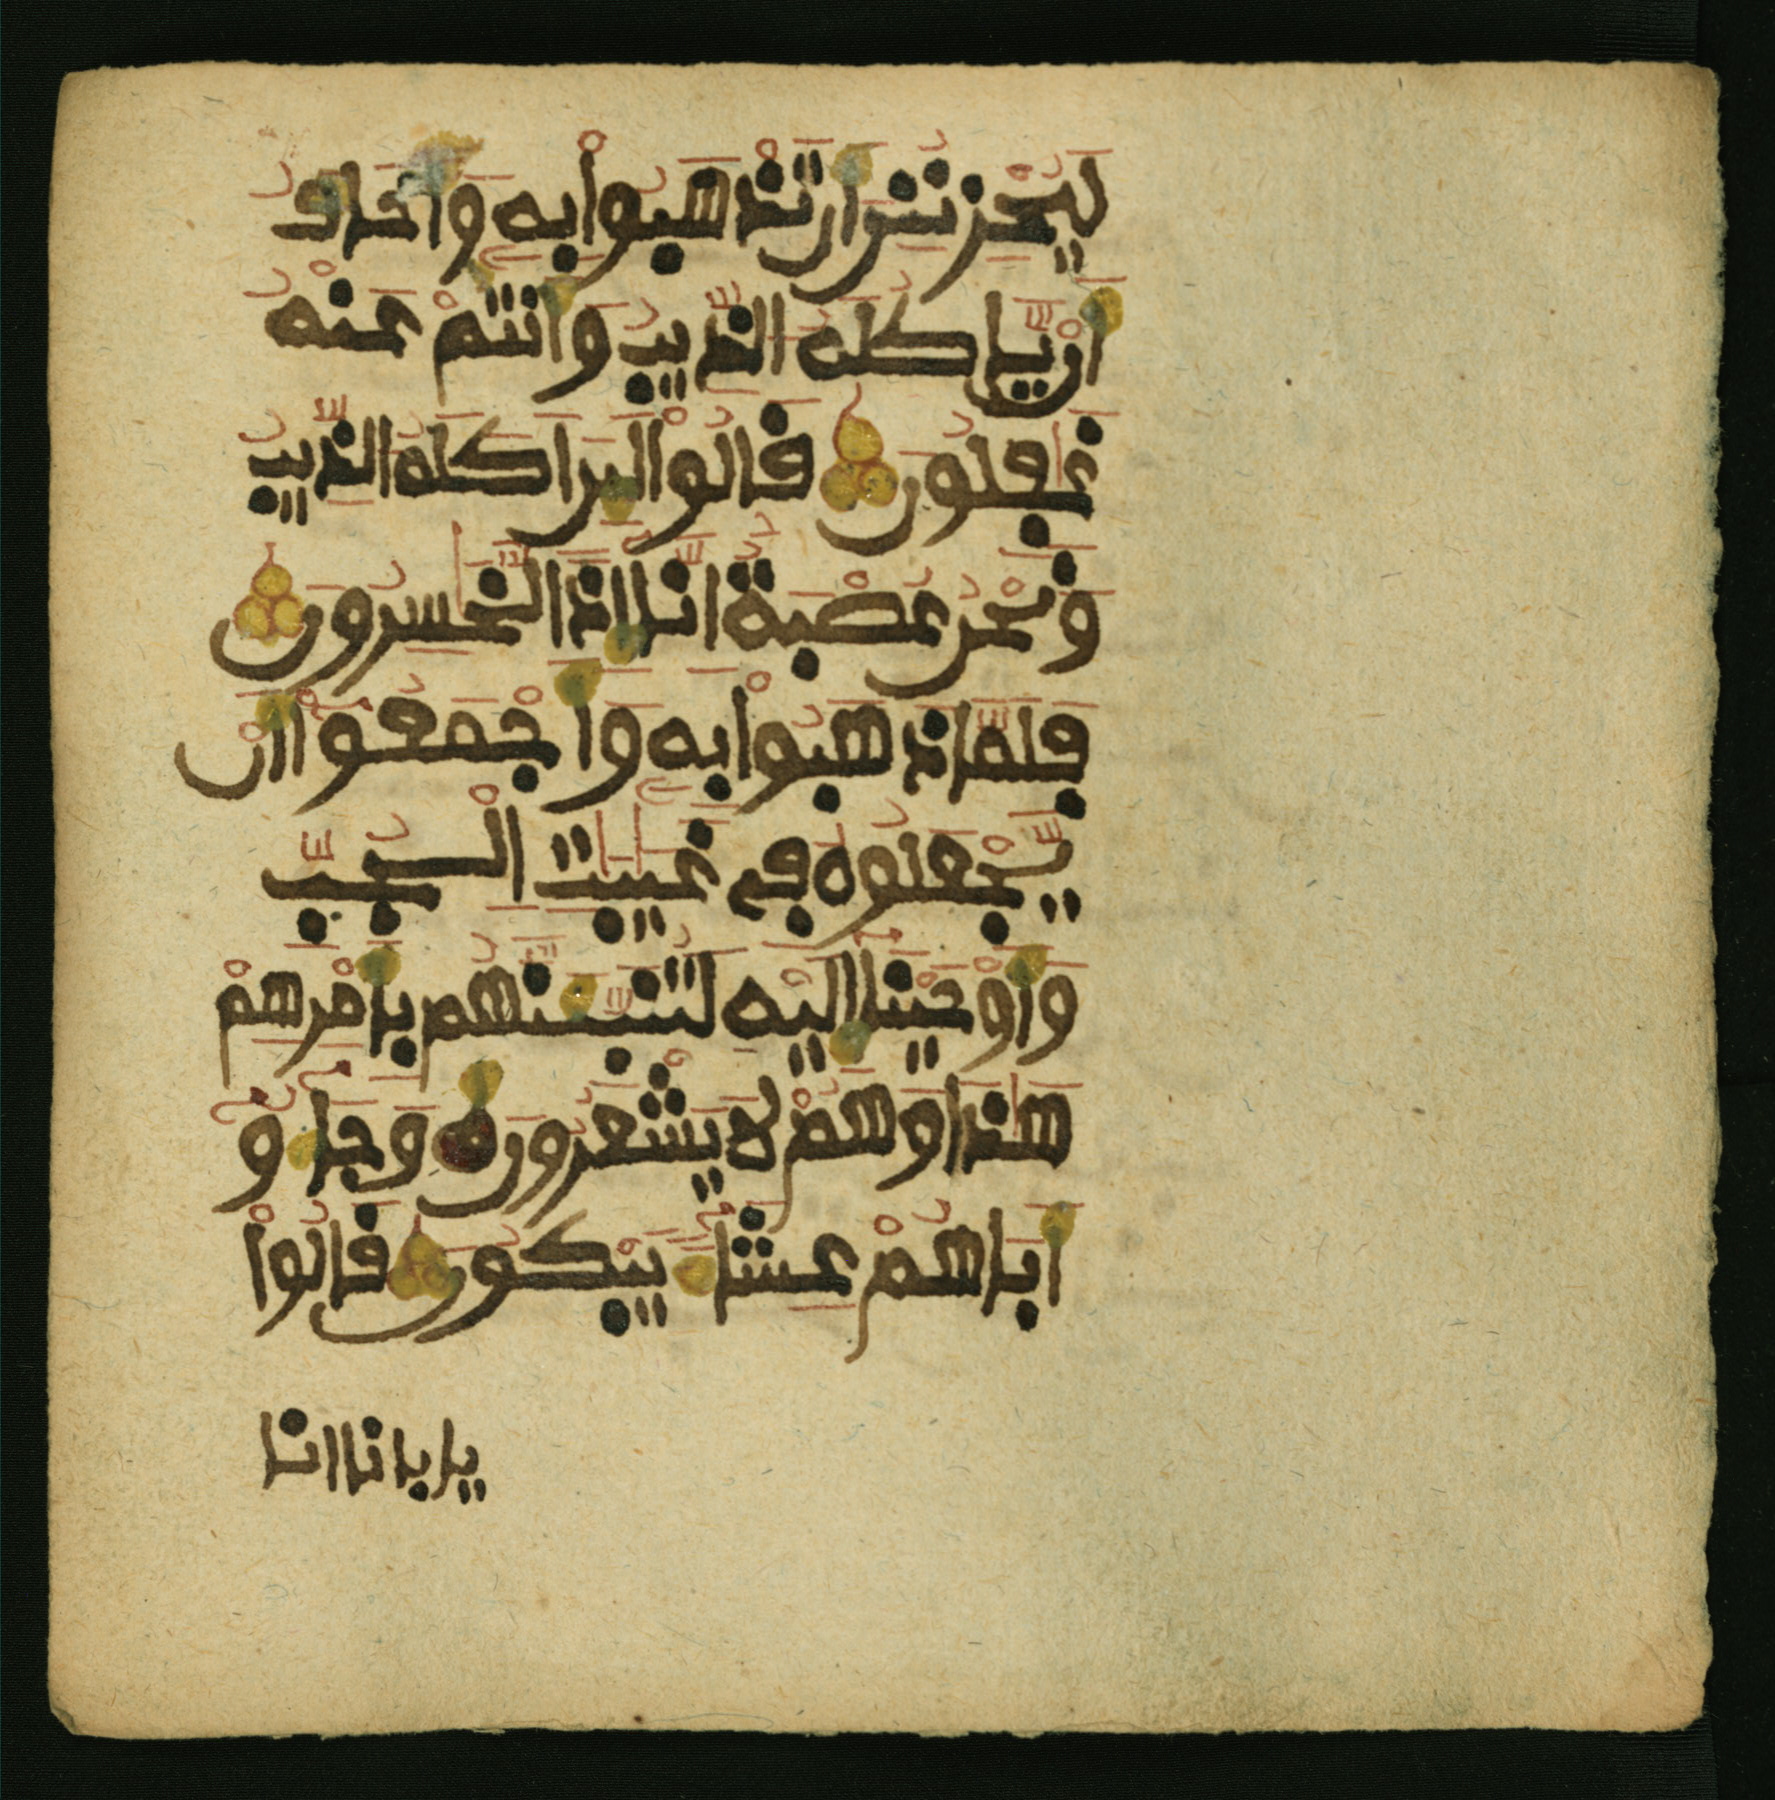 لَيُحْزِنُنِي أَن تَذْهَبُواْ بِهِ وَأَخَافُ
أَنْ يَّاكُلَهُ الذِّيبُ وَأَنتُمْ عَنْهُ
غَٰفِلُونَ قَالُواْ لَئِنَ اَكَلَهُ الذِّيبُ
وَنَحْنُ عُصْبَةٌ اِنَّا إِذاً لَّخَٰسِرُونَ
فَلَمَّا ذَهَبُواْ بِهِ وَأَجْمَعُواْ أَنْ
يَّجْعَلُوهُ فِي غَيَٰبَٰتِ الْجُبِّ
وَأَوْحَيْنَا إِلَيْهِ لَتُنَبِّئَنَّهُم بِأَمْرِهِمْ
هَٰذَا وَهُمْ لَا يَشْعُرُونَ وَجَاءُو
أَبَاهُمْ عِشَاءً يَبْكُونَ قَالُواْ
يابانا انا